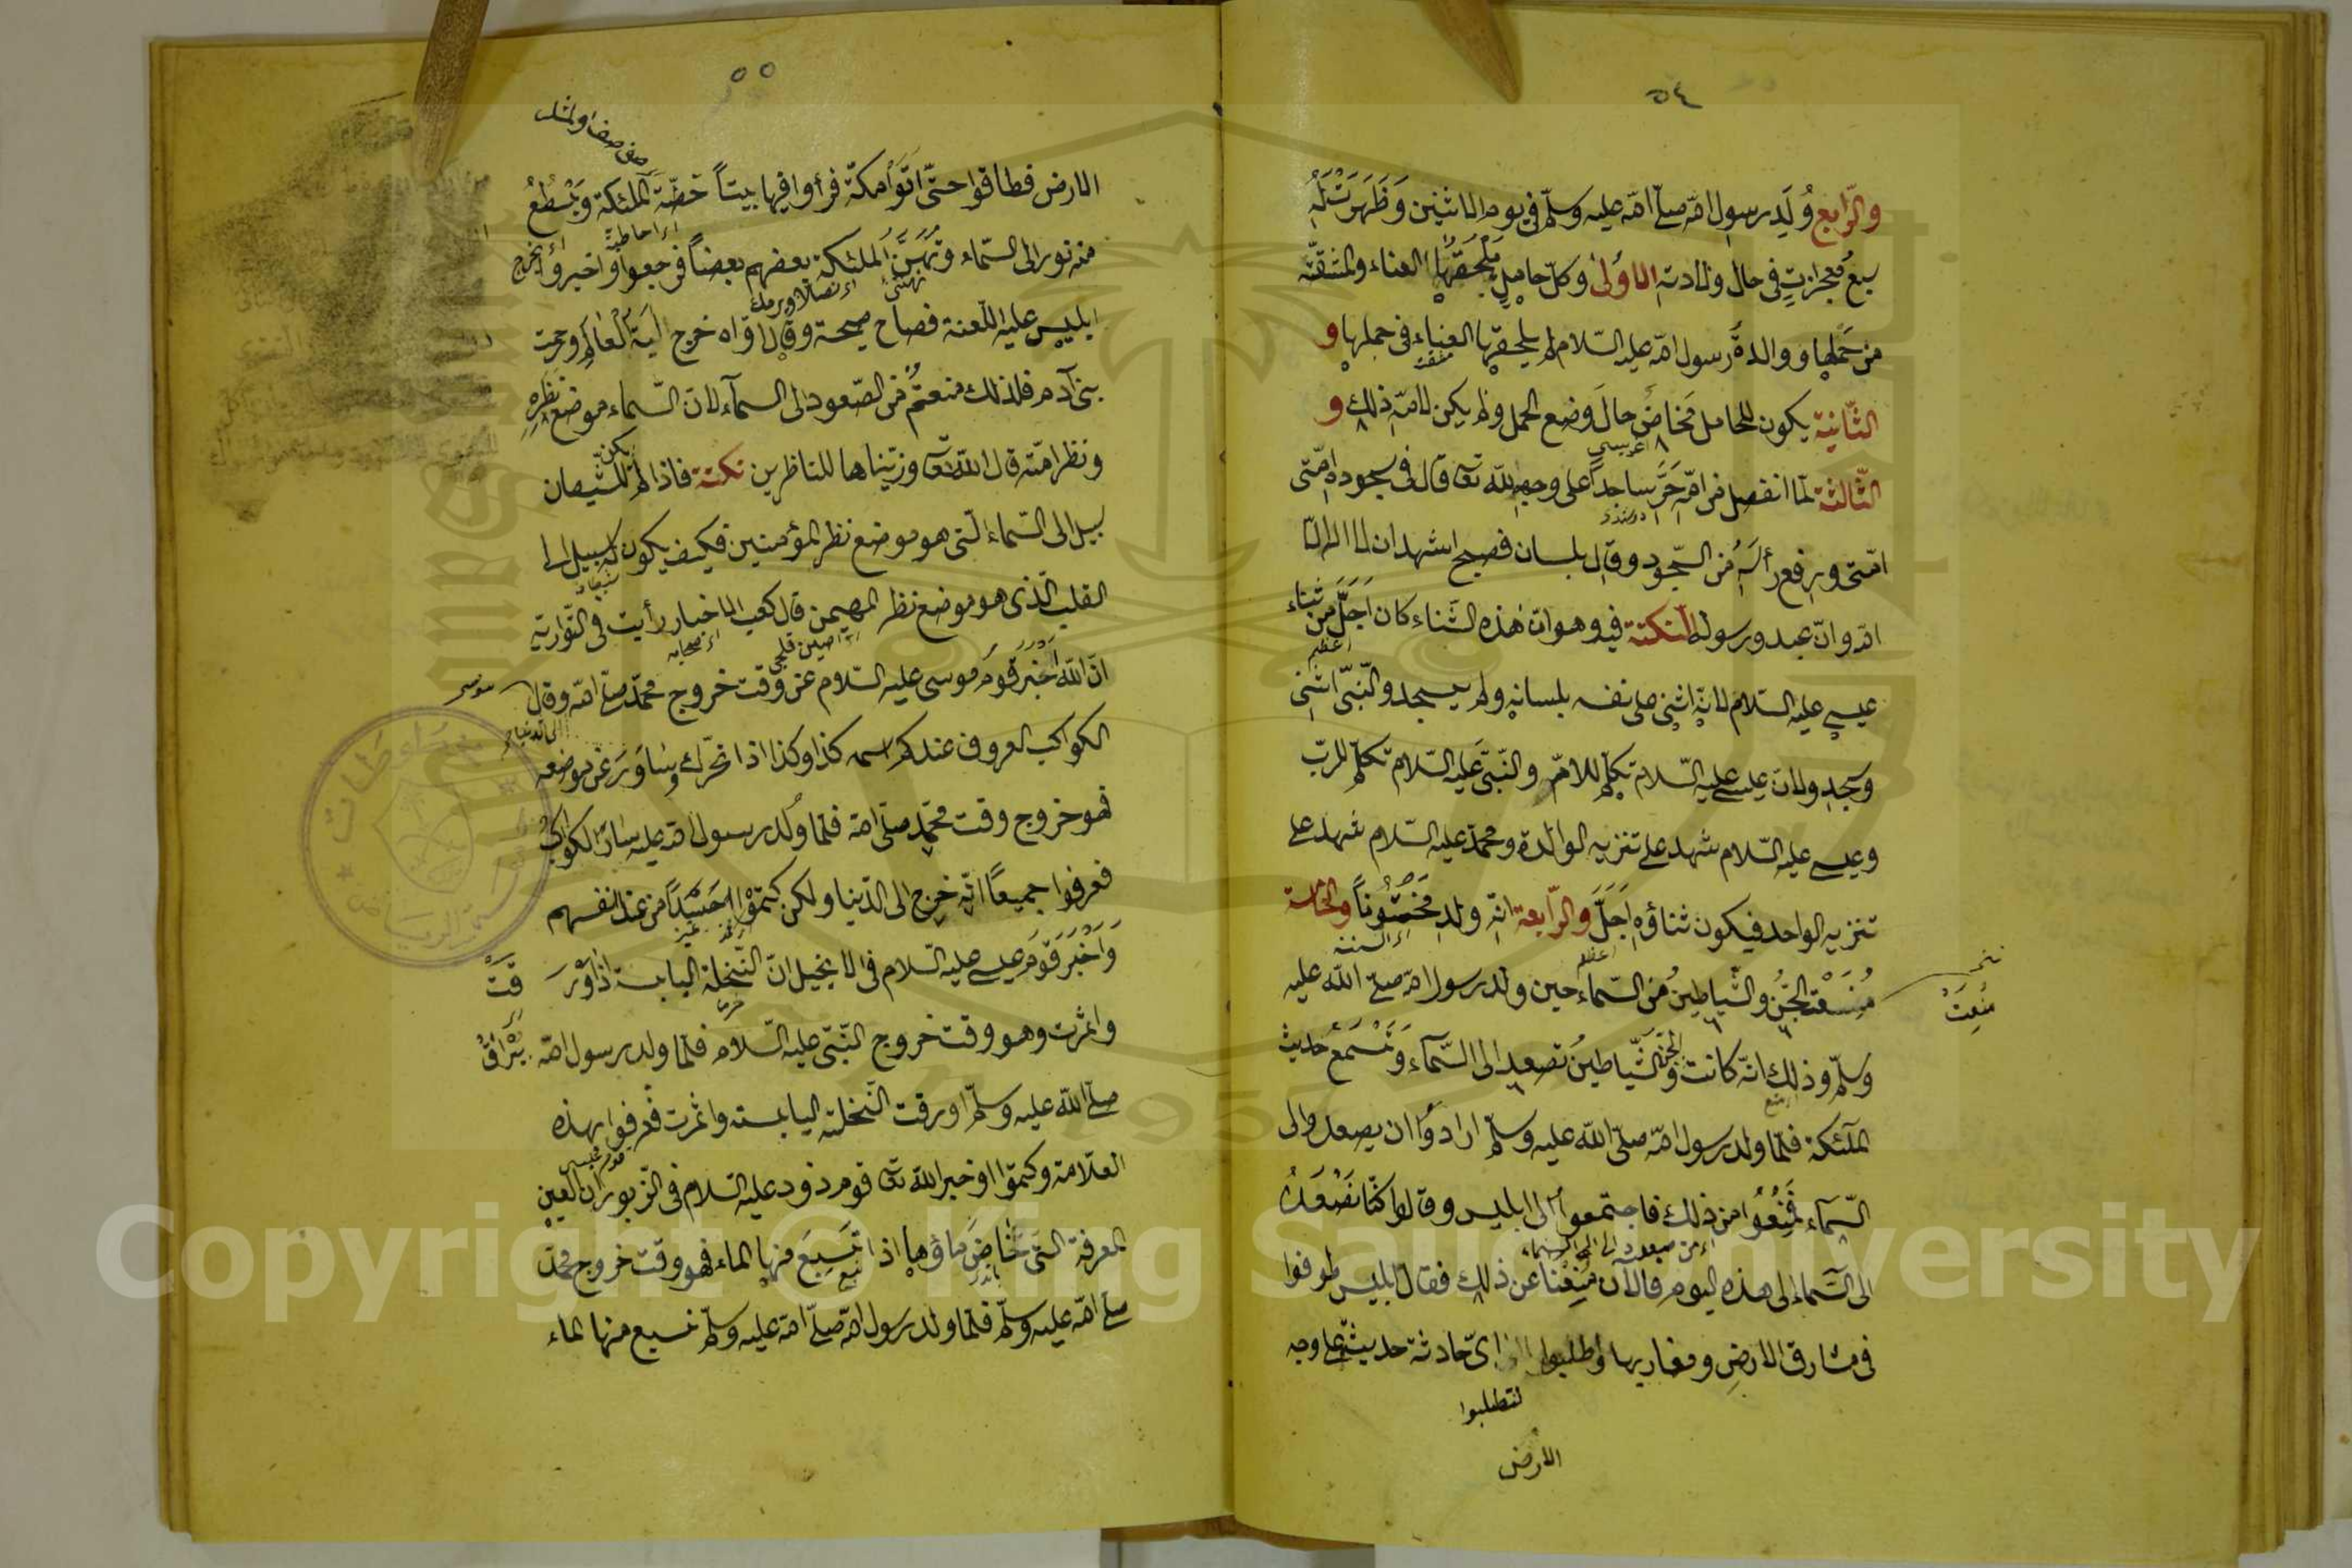 ٥٤
والرّابع وُلَدِ رسول الله صلّى الله عليه وسلّم في يوم الاثنين وَظَهَرَتْ لَهُ
سبعُ معجزاتٍ فى حال ولادته الاُولىٰ وكلّ حاملٍ يَلْحَقُهَا العناء والمشقّة
من حَمْلِها ووالدةُ رسول الله عليه السّلام لم يلحقها العناء فى حملها و
مشقت
الثّانية يكون للحامل مَخاضٌ حالَ وضع الحمل ولم يكن لامّه ذلك و
الثّالثة لمّا انفصل من امّه خَرَّ ساجداً على وجهه لله تعالى قال فى سجوده امّتى
امّتى ورفع رأسَهُ من السّجود وقال بلسان فصيح اشهد ان لا اله الّا
الله وانّ عبده ورسوله النكتة فيه وهو انّ هٰذه الثّناء كان اَجَلَّ من ثناء
اعظم
عيسى عليه السّلام لانّه اثنى على نفسه بلسانه ولم يسجد والنّبىّ اثنى
وسجد ولانّ عيسى عليه السّلام تكلّم للامّ والنّبىّ عليه السّلام تكلّم للربّ
وعيسى عليه السّلام شهد على تنزيه الوالدة ومحمّد عليه السّلام شهد على
تنزيه الواحد فيكون ثناؤه اَجَلَّ والرّابعة انّه ولد مَخْتُوناً والخامسة
اعظم
مُنِسَعْت الجنُّ والشّياطينُ من السّماء حين ولد رسول الله صلّى الله عليه
مُنِعَتْ
وسلّم وذلك انّه كانت الجنّ والشّياطينُ تصعد الى السّمآء وتَسْمَعُ حديث
الملٓئكة فلمّا ولد رسول الله صلّى الله عليه وسلّم ارادوا ان يصعدوا الى
السّمآء فَمُنِعُوا من ذلك فاجتمعوا الى ابليس وقالوا كنّا نَصْعَدُ
الى السّمآء الى هذه اليوم فالآن مُنِعْنا عن ذلك فقال ابليس طوفوا
فى مشارق الارض ومغاربها واطلبوا اىّ حادثة حديثة على وجه
لتطلبوا
الارض
٥٥
الارض فطافوا حتّى اتَوْا مكّة فرأوا فيها بيتاً حفّته الملئكة وَيَسْطَعُ
منه نور الى السّماء وتُهَنِّى الملئكة بعضهم بعضاً فرجعوا واخبروا
ابليس عليه اللّعنة فصاح صيحة وقال اوّاه خرج اٰيَةُ الْعٰالَمِ ورحمت
بنى آدم فلذلك منعتم من الصّعود الى السمآء لانّ السّماء موضع نظره
ونظر امّته قال الله تعالى وزيّنّاها للنّاظرين نكتة فاذا لم يكن للشّيطان
سبيل الى السّماء الّتى هو موضع نظر المؤمنين فكيف يكون له سبيل الى
القلب الّذى هو موضع نظر المهيمن قال كعب الاخبار رأيت فى التّوارية
انّ الله اَخْبَرَ قَوْمَ موسى عليه السّلام عن وقت خروج محمّد صلّى الله وقال
موسى
الكواكب المعروف عندكم اسمه كذا وكذا اذا تحرّك وسَاوَرَ عن موضعه
فهو خروج وقت محمّد صلّى الله فلمّا وُلد رسول الله عليه سَارَ الكواكبُ
فعرفوا جميعاً انّه خرج الى الدّنيا ولكن كتموْا حَسَداً من عند انفسهم
وَاَخْبَرَ قَوْمَ عيسى عليه السّلام فى الانجيل انّ النّخلة اليابسة اذا وْرَقَتْ
واثمرت وهو وقت خروج النّبىّ عليه السّلام فلمّا ولد رسول الله
صلّى الله عليه وسلّم اورقت النّخلة اليابسة واثمرت فعرفوا بهذه
العلامة وكتموا واخبر الله تعالى قوم داود عليه السّلام فى الزّبور ان العين
المعرفة الّتى غَاضَ ماؤها اذا نَبَعَ منها الماء فهو وقت خروج محمّد
صلّى الله عليه وسلّم فلمّا ولد رسول الله صلّى الله عليه وسلّم نبع منها الماء
Copyright © King Saud University
1957